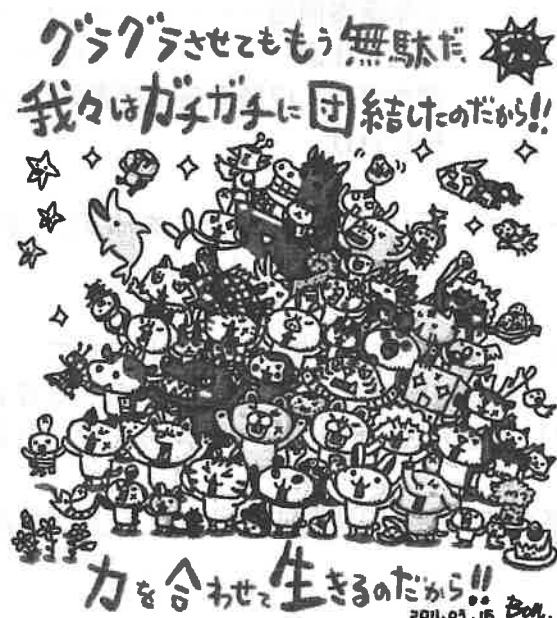 グラグラさせてももう無駄だ
我々はガチガチに団結したのだから!!
力を合わせて生きるのだから!!
2011.03.15 Bon.